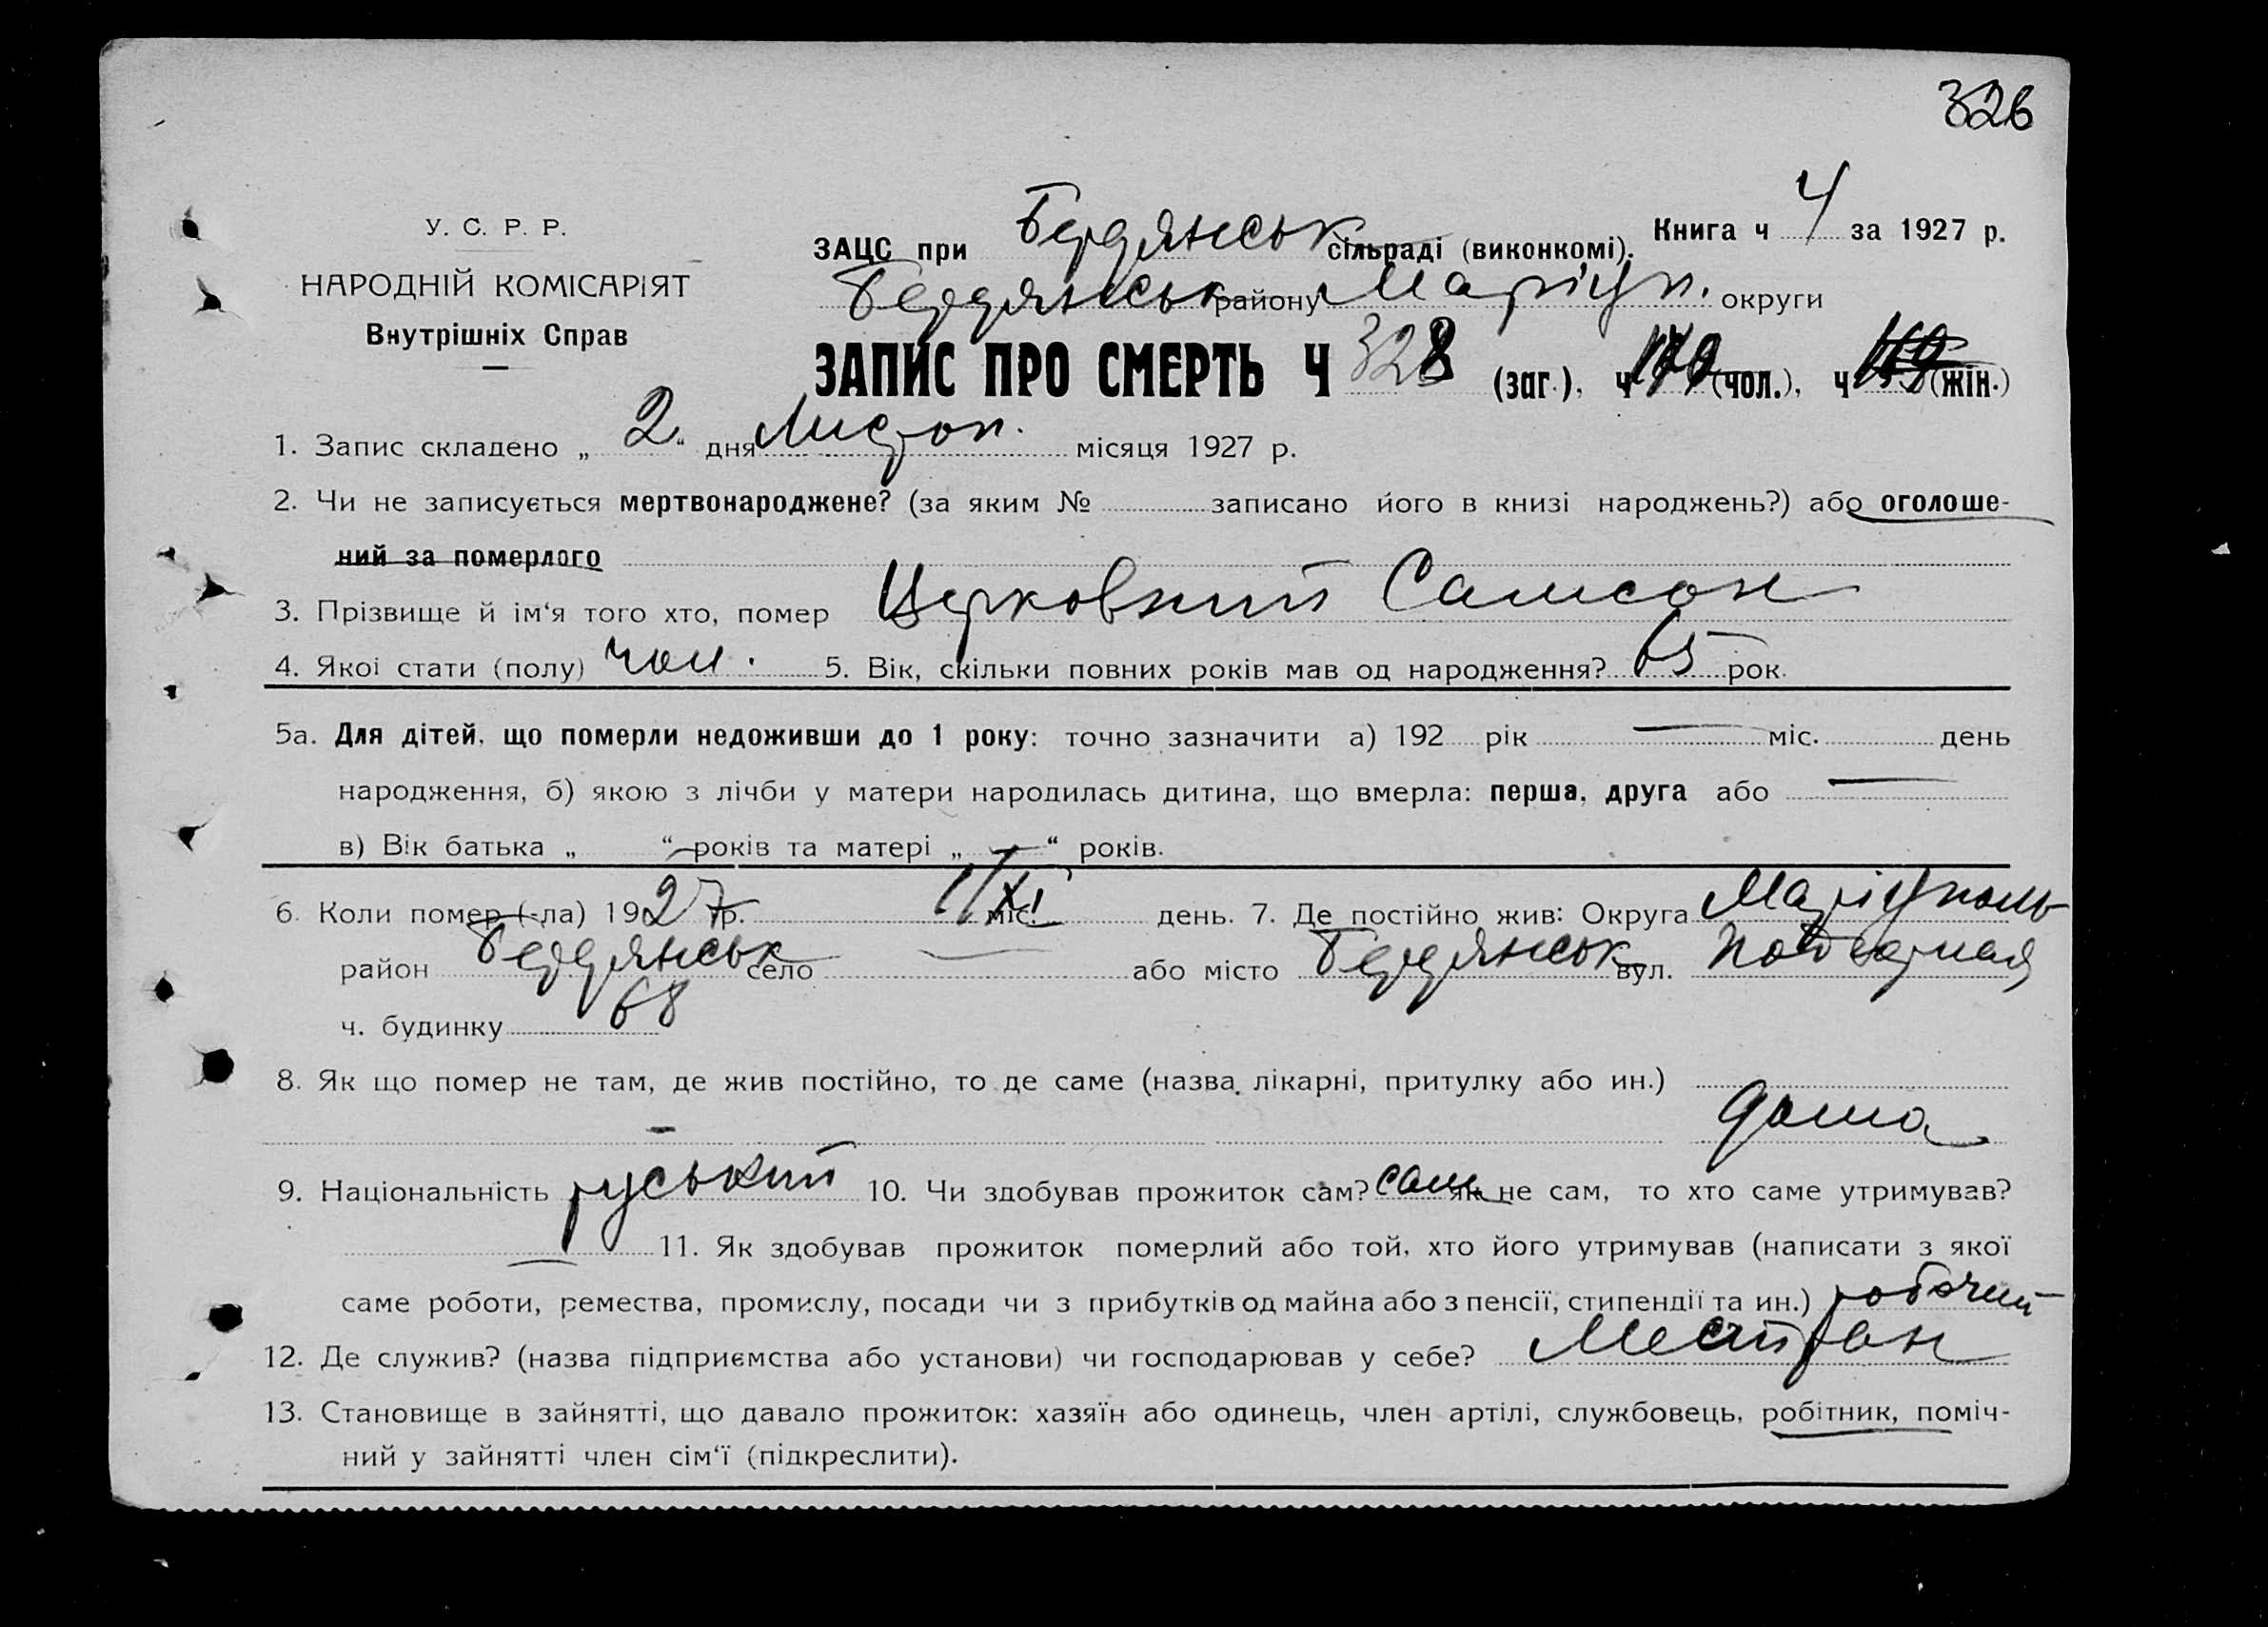 326
У. С. Р. Р.
НАРОДНІЙ КОМІСАРІЯТ
Внутрішніх Справ
ЗАЦС при Бердянськ сільраді (виконкомі). Книга ч 4 за 1927 р.
Бердянськ району Маріуп. округи
ЗАПИС ПРО СМЕРТЬ Ч 328 (заг.), ч (чол.), ч (жін.)
1. Запис складено „ 2 “ дня Листоп. місяця 1927 р.
2. Чи не записується мертвонароджене? (за яким № записано його в книзі народжень?) або оголоше-
ний за померлого
3. Прізвище й ім‘я того хто, помер Церковний Самсон
4. Якоі стати (полу) чол. 5. Вік, скільки повних років мав од народження? 65 рок.
5а. Для дітей, що померли недоживши до 1 року: точно зазначити а) 192 рік — міс. день
народження, б) якою з лічби у матери народилась дитина, що вмерла: перша, друга або —
в) Вік батька „ — “ років та матері „ — “ років.
6. Коли помер (-ла) 1927 р. 1/XI міс. день. 7. Де постійно жив: Округа Маріуполь
район Бердянськ село — або місто Бердянськ вул.
ч. будинку 68
8. Як що помер не там, де жив постійно, то де саме (назва лікарні, притулку або ин.)
дома
9. Національність руський 10. Чи здобував прожиток сам? сам як не сам, то хто саме утримував?
— 11. Як здобував прожиток померлий або той, хто його утримував (написати з якої
саме роботи, ремества, промислу, посади чи з прибутків од майна або з пенсії, стипендії та ин.) робочий
12. Де служив? (назва підприємства або установи) чи господарював у себе?
13. Становище в зайнятті, що давало прожиток: хазяїн або одинець, член артілі, службовець, робітник, поміч-
ний у зайнятті член сім‘ї (підкреслити).